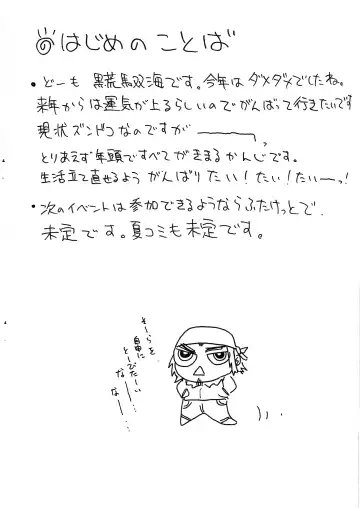 ◎はじめのことば
・どーも 黒荒馬双海です。今年はダメダメでしたね。
来年からは運気が上るらしいのでがんばって行きたいです
現状ズンドコなのですが———っ
とりあえず年頭ですべてがきまるかんじです。
生活立て直せるよう がんばりたい!たい!たいーっ!
・次のイベントは参加できるようならふたけっとで、
未定です。夏コミも未定です。
そーらを
自由に
とーびたーい
なー…
なー…